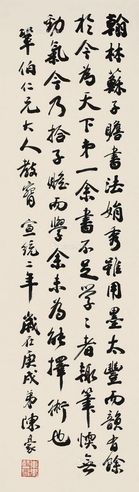 翰林蘇子瞻書法娟秀雖用墨太豐而韻有餘
於今為天下弟一余書不足学々者輒筆愞無
勁氣今乃捨子瞻而學余未為能擇術也
鞏伯仁兄大人教 宣統二年 歲在庚戌弟陳豪